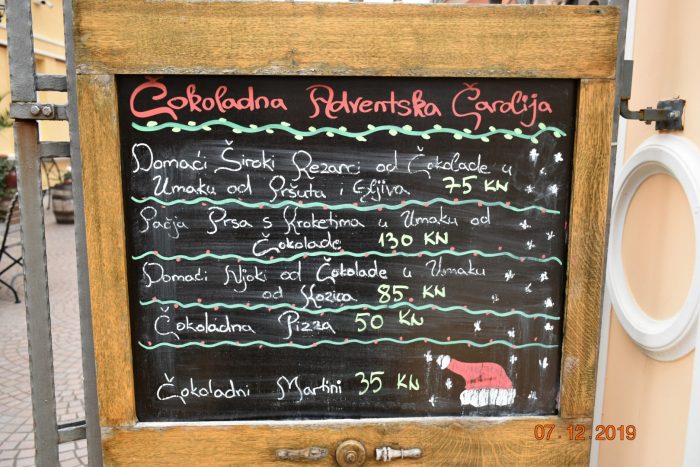 Čokoladna Adventska Čarolija
Domaći Široki Rezanci od Čokolade u
Umaku od Pršuta i Gljiva 75 KN
Pačja Prsa s Kroketima u Umaku od
Čokolade 130 KN
Domaći Njoki od Čokolade u Umaku
od Kozica 85 KN
Čokoladna Pizza 50 KN
Čokoladni Martini 35 KN
07 12 2019